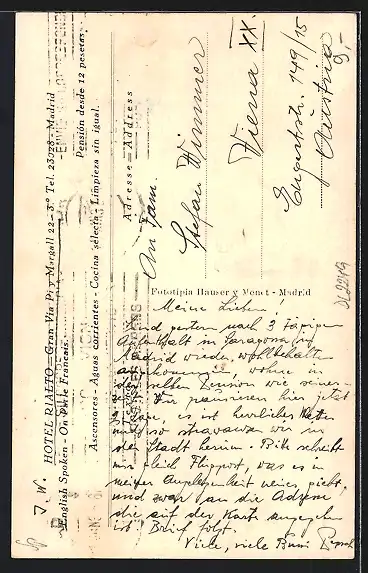 J. W.
HOTEL RIALTO=Gran Via Pi y Margall 22-3.º Tel. 23028-Madrid
English Spoken - On Parle Francais.
Pensión desde 12 pesetas.
Ascensores - Aguas corrientes - Cocina selecta - Limpieza sin igual.
Adresse=Address
An Fam.
Stefan Wimmer
Viena XX.
Engertstr. 149/15
Austria
9,-
Fototipia Hauser y Menet - Madrid
DL2249
Meine Lieben!
Sind gestern nach 3 tägigen
Aufenthalt in Zaragoza in
Madrid wieder wohlbehalten
angekommen, wohne in
derselben Pension wie seiner
zeit. Wir pausieren hier jetzt
es ist herrliches Wetter
und so stravanzen wir in
der Stadt herum. Bitte schreibt
mir gleich Flugpost, was es in
meiner Angelegenheit neues giebt,
und zwar an die Adresse
die auf der Karte angegeben
ist! Brief folgt.
Viele, viele Bussi Pepsch